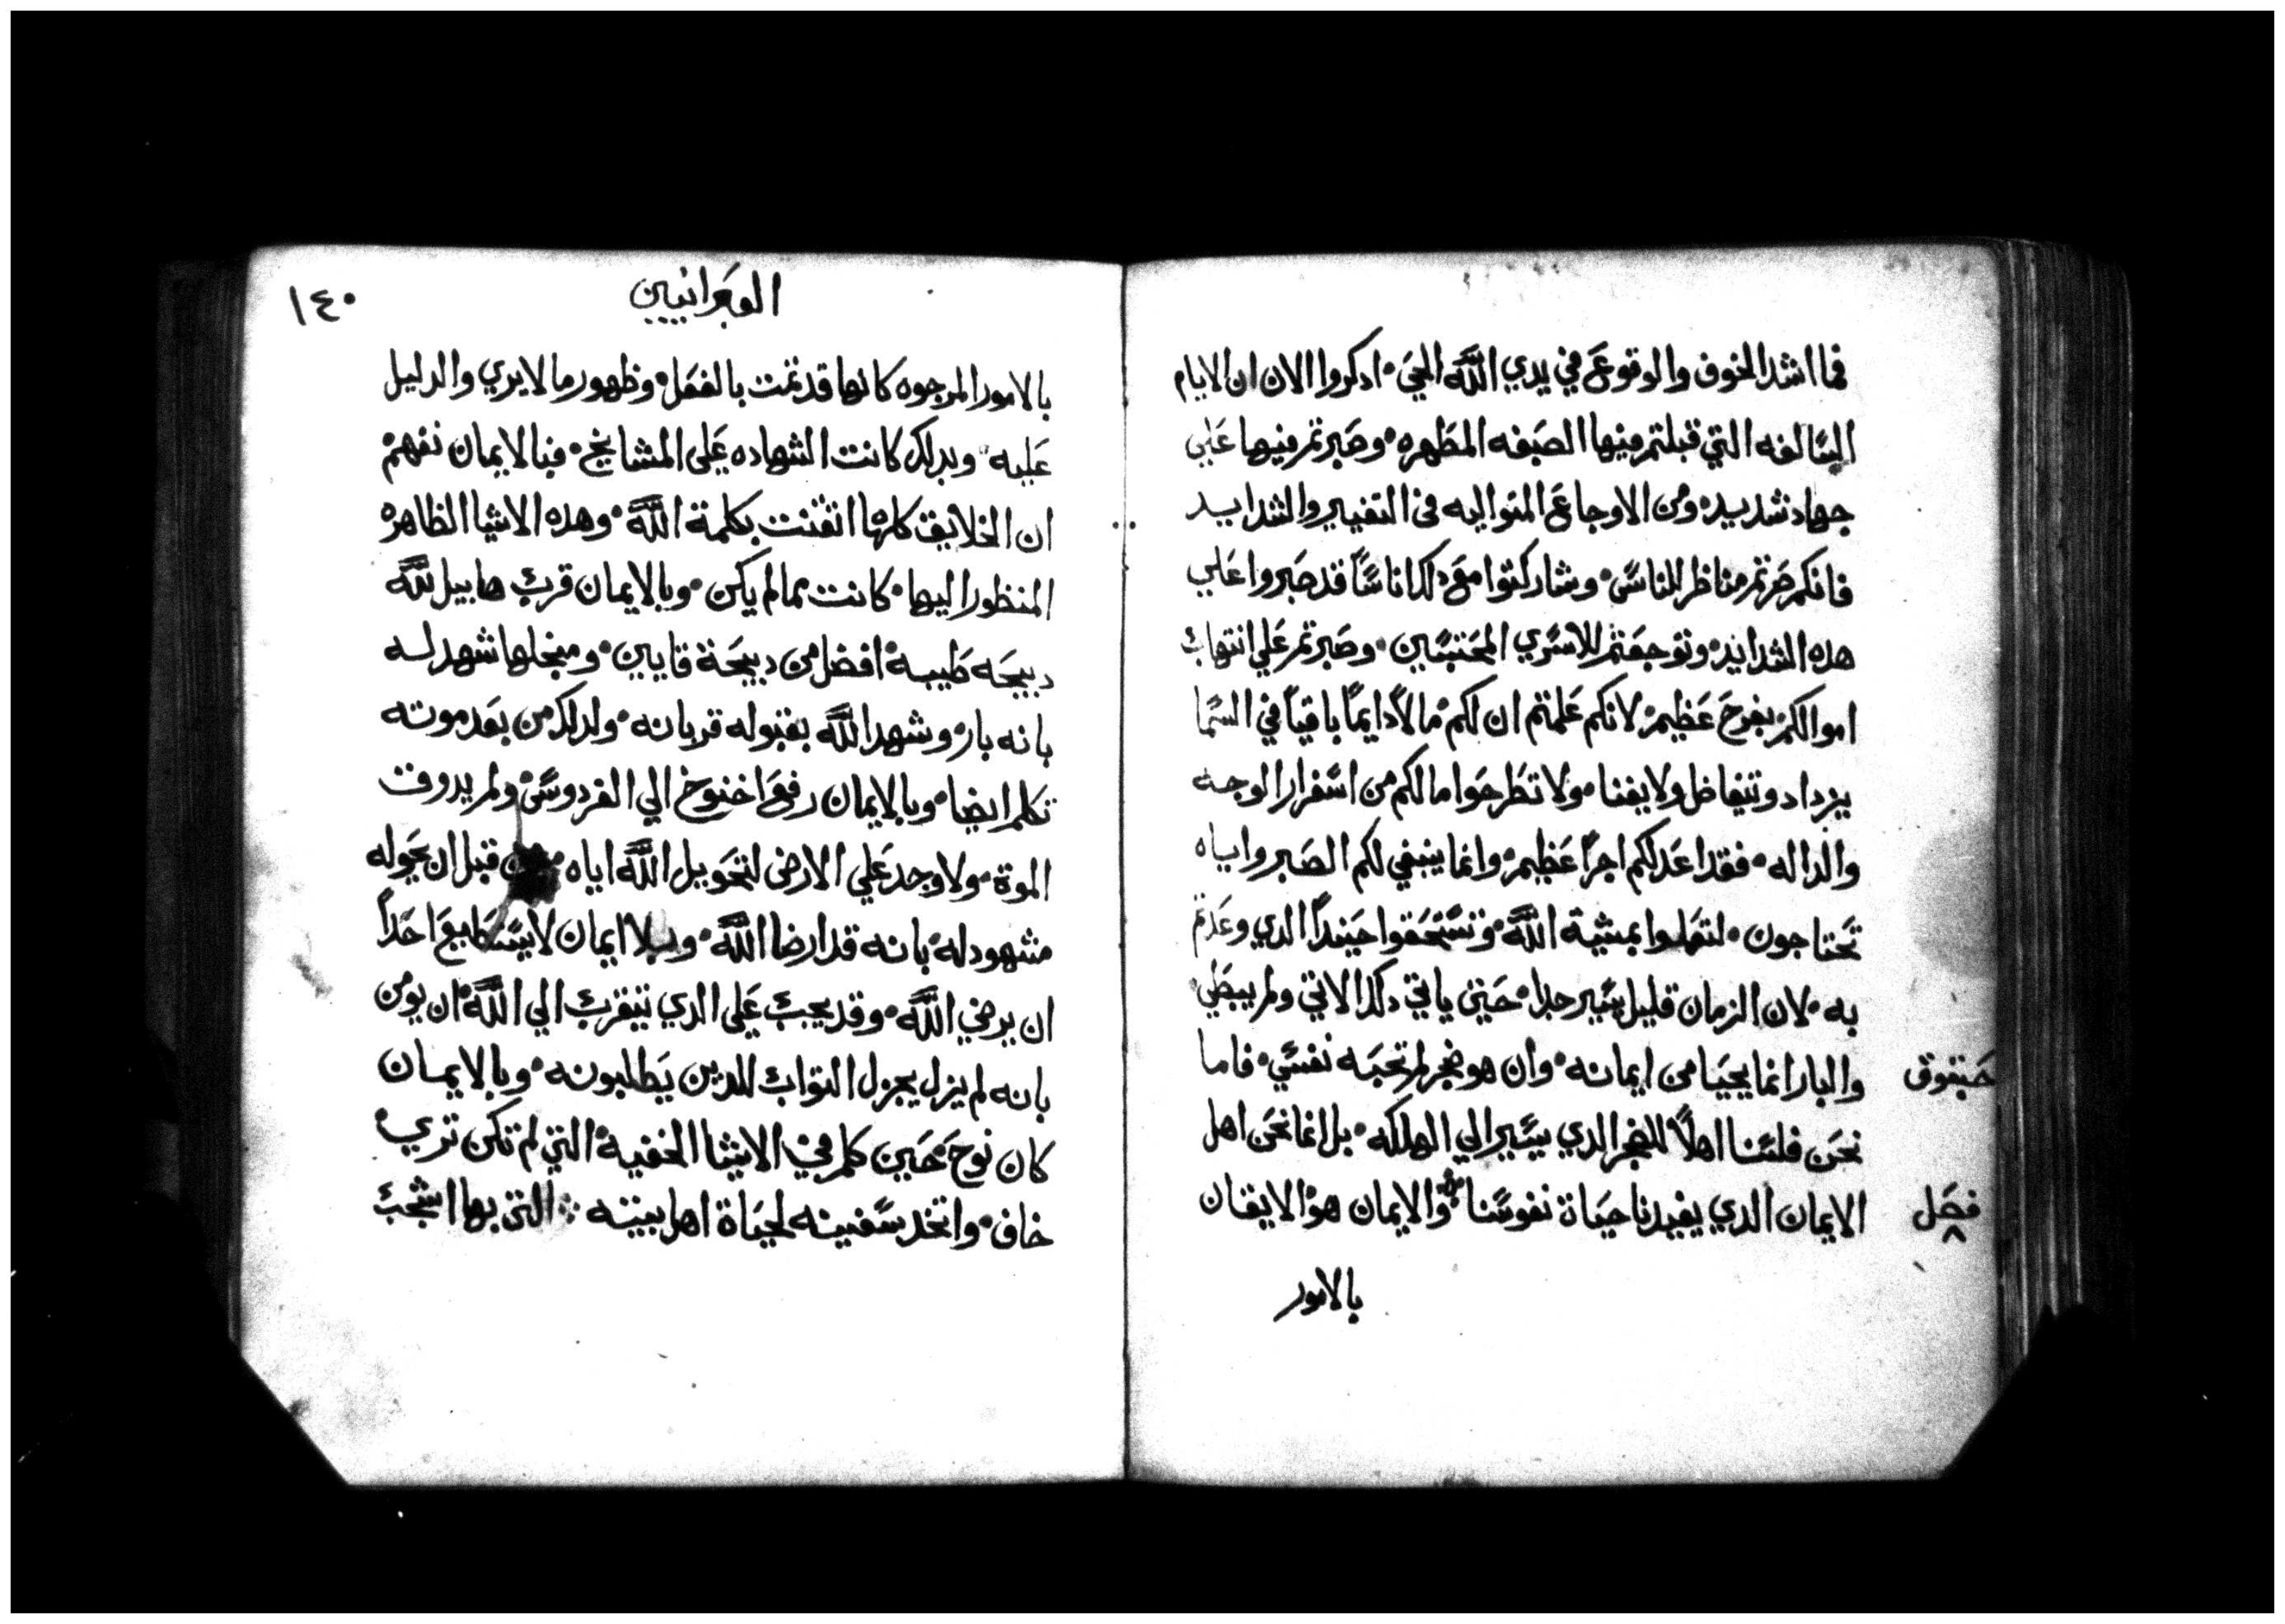 فما اشد الخوف والوقوع في يدي الله الحي۰ ادكروا الان ان الايام
السالفه التي قبلتم فيها الصبغه المطهره۰ وصبرتم فيها علي
جهاد شديد۰ ومن الاوجاع المتواليه في التغيير والشدايد
فانكم صرتم مناظر للناس۰ وشاركتوا مع دلك اناسًا قد صبروا علي
هده الشدايد۰ وتوجعتم للاسري المحتبسين۰ وصبرتم علي انتهاب
اموالكم بفرح عظيم۰ لانكم علمتم ان لكم مالاً دايمًا باقياً في السما
يزداد ويتفاضل ولا يفنا۰ ولا تطرحوا مالكم من اسفرار الوجه
والداله۰ فقد اعد لكم اجرًا عظيم۰ وانما ينبغي لكم الصبر واياه
تحتاجون۰ لتعملوا بمشية الله۰ وتستحقوا حينيدًا الدي وعدتم
به۰ لان الزمان قليل يسير جدا۰ حتي ياتي دلك الاتي ولم يبطي
حبقوق
والبار انما يحيا من ايمانه۰ وان هو ضجر لم تحبه نفسي۰ فاما
نحن فلسنا اهلاً للضجر الدي يسير الي الهلكه۰ بل انما نحن اهل
فصل
الايمان الدي يفيدنا حياة نفوسنا۰ والايمان هو الايقان
بالامور
العبرانيين
١٤٠
بالامور المرجوه كانها قد تمت بالفعل۰ وظهور ما لا يري والدليل
عليه۰ وبدلك كانت الشهاده علي المشايخ۰ فبالايمان نفهم
ان الخلايق كلها اتقنت بكلمة الله۰ وهده الاشيا الظاهره
المنظور اليها۰ كانت مما لم يكن۰ وبالايمان قرب هابيل لله
دبيحه طيبه۰ افضل من دبيحة قايين۰ ومنجلها شهد له
بانه بار۰ وشهد الله بقبوله قربانه۰ ولدلك من بعد موته
تكلم ايضا۰ وبالايمان رفع اخنوخ الي الفردوس۰ ولم يدوق
الموة۰ ولا وجد علي الارض لتحويل الله اياه من قبل ان يحوله
مشهود له۰ بانه قد ارضا الله۰ وبلا ايمان لا يستطيع احداً
ان يرضي الله۰ وقد يجب علي الدي يتقرب الي الله۰ ان يومن
بانه لم يزل يجزل التواب للدين يطلبونه۰ وبالايمان
كان نوح حين كلم في الاشيا الخفية۰ التي لم تكن تري
خاف۰ واتخد سفينه لحياة اهل بيته۰ التي بها اشجب